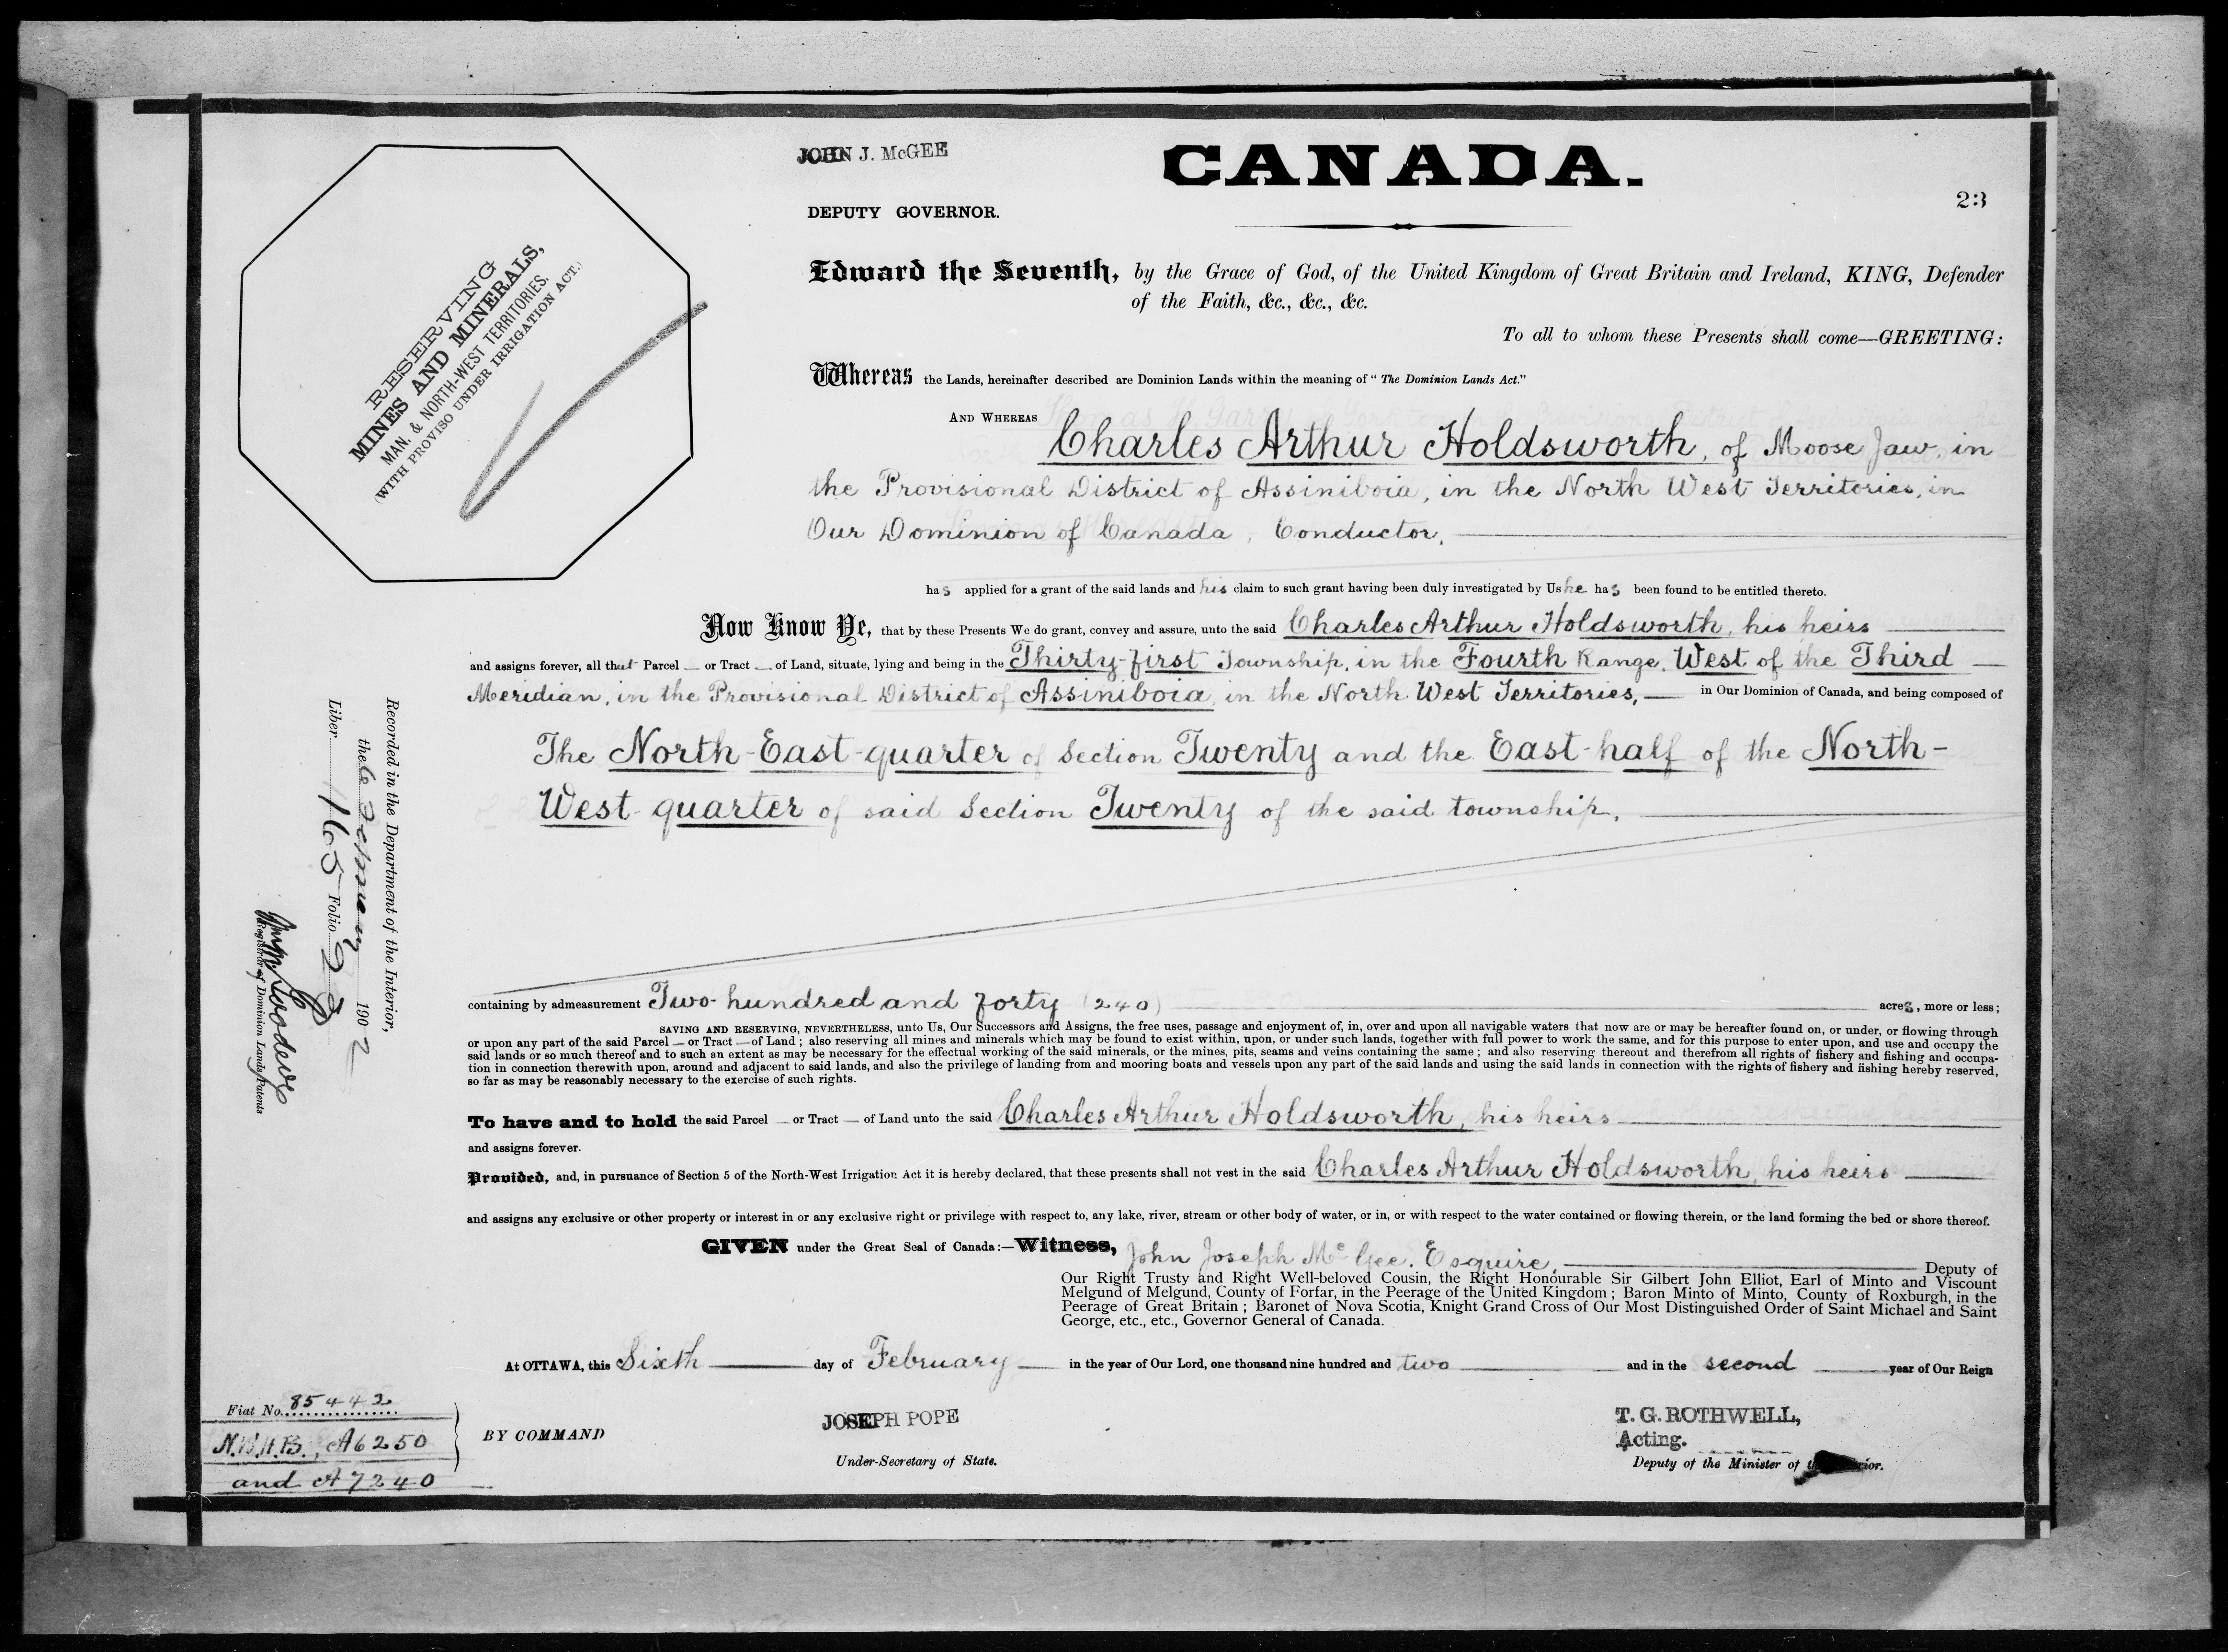 JOHN J. McGEE
CANADA.
23
DEPUTY GOVERNOR.
RESERVING
MINES AND MINERALS,
MAN. & NORTH-WEST TERRITORIES.
(WITH PROVISO UNDER IRRIGATION ACT.)
Edward the Seventh, by the Grace of God, of the United Kingdom of Great Britain and Ireland, KING, Defender
of the Faith, &c., &c., &c.
To all to whom these Presents shall come—GREETING:
Whereas the Lands, hereinafter described are Dominion Lands within the meaning of "The Dominion Lands Act."
AND WHEREAS
Charles Arthur Holdsworth, of Moose Jaw, in
the Provisional District of Assiniboia, in the North West Territories, in
Our Dominion of Canada, Conductor,
has applied for a grant of the said lands and his claim to such grant having been duly investigated by Us he has been found to be entitled thereto.
Now Know Ye, that by these Presents We do grant, convey and assure, unto the said Charles Arthur Holdsworth, his heirs
and assigns forever, all that Parcel — or Tract — of Land, situate, lying and being in the Thirty-first Township, in the Fourth Range, West of the Third —
Meridian, in the Provisional District of Assiniboia, in the North West Territories, — in Our Dominion of Canada, and being composed of
The North-East-quarter of Section Twenty and the East-half of the North-
West-quarter of said Section Twenty of the said township.
containing by admeasurement Two hundred and forty (240) acres, more or less;
SAVING AND RESERVING, NEVERTHELESS, unto Us, Our Successors and Assigns, the free uses, passage and enjoyment of, in, over and upon all navigable waters that now are or may be hereafter found on, or under, or flowing through
or upon any part of the said Parcel — or Tract — of Land; also reserving all mines and minerals which may be found to exist within, upon, or under such lands, together with full power to work the same, and for this purpose to enter upon, and use and occupy the
said lands or so much thereof and to such an extent as may be necessary for the effectual working of the said minerals, or the mines, pits, seams and veins containing the same; and also reserving thereout and therefrom all rights of fishery and fishing and occupa-
tion in connection therewith upon, around and adjacent to said lands, and also the privilege of landing from and mooring boats and vessels upon any part of the said lands and using the said lands in connection with the rights of fishery and fishing hereby reserved,
so far as may be reasonably necessary to the exercise of such rights.
To have and to hold the said Parcel — or Tract — of Land unto the said Charles Arthur Holdsworth, his heirs
and assigns forever.
Provided, and, in pursuance of Section 5 of the North-West Irrigation Act it is hereby declared, that these presents shall not vest in the said Charles Arthur Holdsworth, his heirs
and assigns any exclusive or other property or interest in or any exclusive right or privilege with respect to, any lake, river, stream or other body of water, or in, or with respect to the water contained or flowing therein, or the land forming the bed or shore thereof.
GIVEN under the Great Seal of Canada:—Witness, John Joseph McGee, Esquire, Deputy of
Our Right Trusty and Right Well-beloved Cousin, the Right Honourable Sir Gilbert John Elliot, Earl of Minto and Viscount
Melgund of Melgund, County of Forfar, in the Peerage of the United Kingdom; Baron Minto of Minto, County of Roxburgh, in the
Peerage of Great Britain; Baronet of Nova Scotia, Knight Grand Cross of Our Most Distinguished Order of Saint Michael and Saint
George, etc., etc., Governor General of Canada.
At OTTAWA, this Sixth day of February in the year of Our Lord, one thousand nine hundred and two and in the second year of Our Reign
Recorded in the Department of the Interior,
the 6 February 1902
Liber 165 Folio 23
Registrar of Dominion Lands Patents
Fiat No. 85442
N.W.H.B., A6250
and A7240
BY COMMAND
JOSEPH POPE
Under-Secretary of State.
T. G. ROTHWELL,
Acting.
Deputy of the Minister of